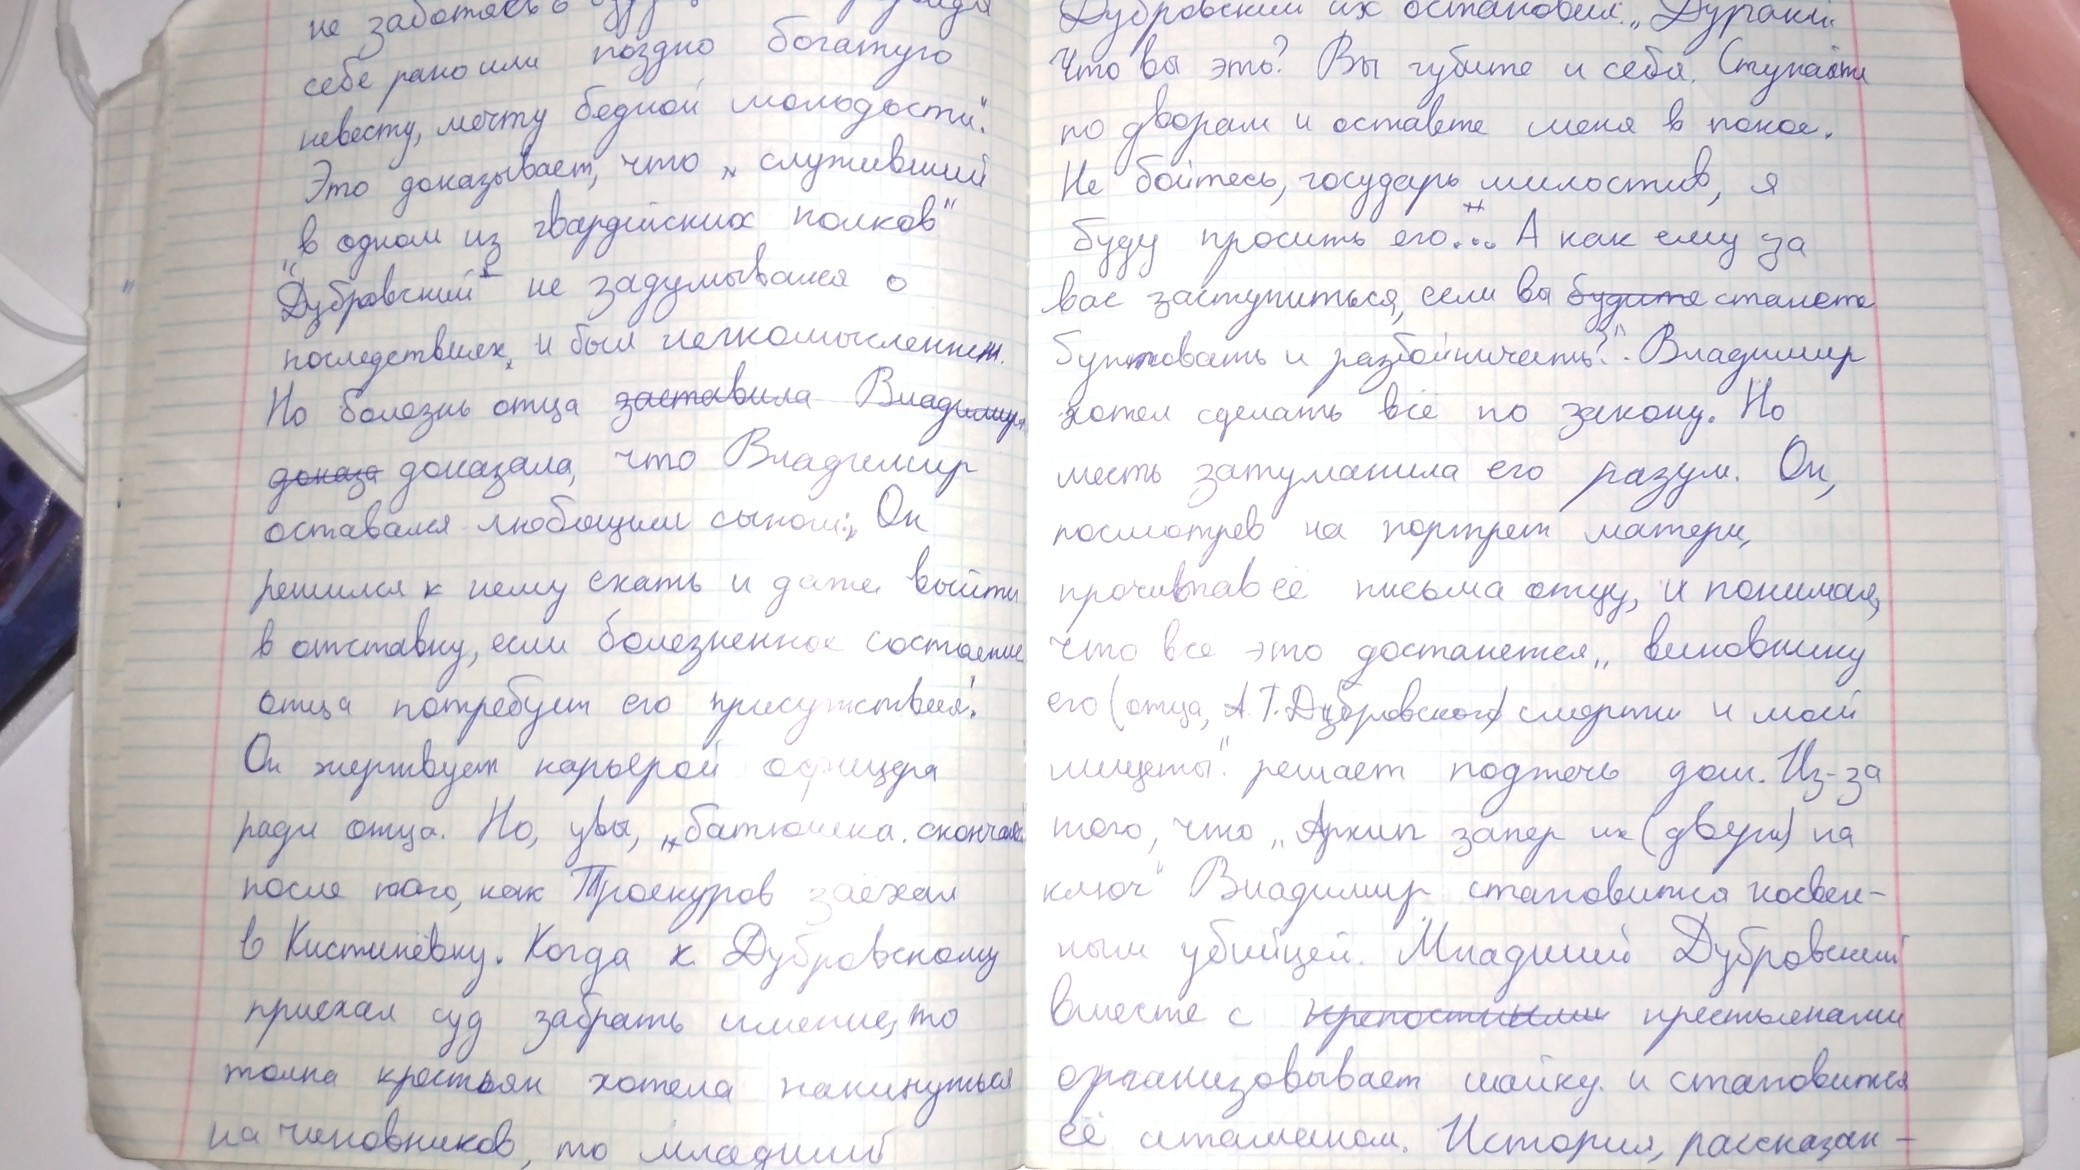 не заботясь о
себе рано или поздно богатую
невесту, мечту бедной молодости".
Это доказывает, что „служивший
в одном из гвардейских полков"
„Дубровский" не задумывался о
последствиях, и был легкомысленнен.
Но болезнь отца заставила Владимира
доказа доказала, что Владимир
оставался любящим сыном: „Он
решился к нему ехать и даже выйти
в отставку, если болезненное состояние
отца потребует его присутствия".
Он жертвует карьерой офицера
ради отца. Но, увы, „батюшка скончался"
после того, как Троекуров заехал
в Кистинёвку. Когда к Дубровскому
приехал суд забрать имение, то
толпа крестьян хотела накинуться
на чиновников, то младший
Дубровский их остановил: „Дураки!
Что вы это? Вы губите и себя. Ступайте
по дворам и оставьте меня в покое.
Не бойтесь, государь милостив, я
буду просить его... А как ему за
вас заступиться, если вы будите станете
бунтовать и разбойничать?". Владимир
хотел сделать всё по закону. Но
месть затуманила его разум. Он,
посмотрев на портрет матери,
прочитав её письма отцу, и понимая,
что все это достанется „виновнику
его (отца, А.Г. Дубровского) смерти и моей
нищеты" решает поджечь дом. Из-за
того, что „Архип запер их (двери) на
ключ" Владимир становится косвен-
ным убийцей. Младший Дубровский
вместе с крепостными крестьянами
организовывает шайку и становится
её атаманом. История, рассказан-